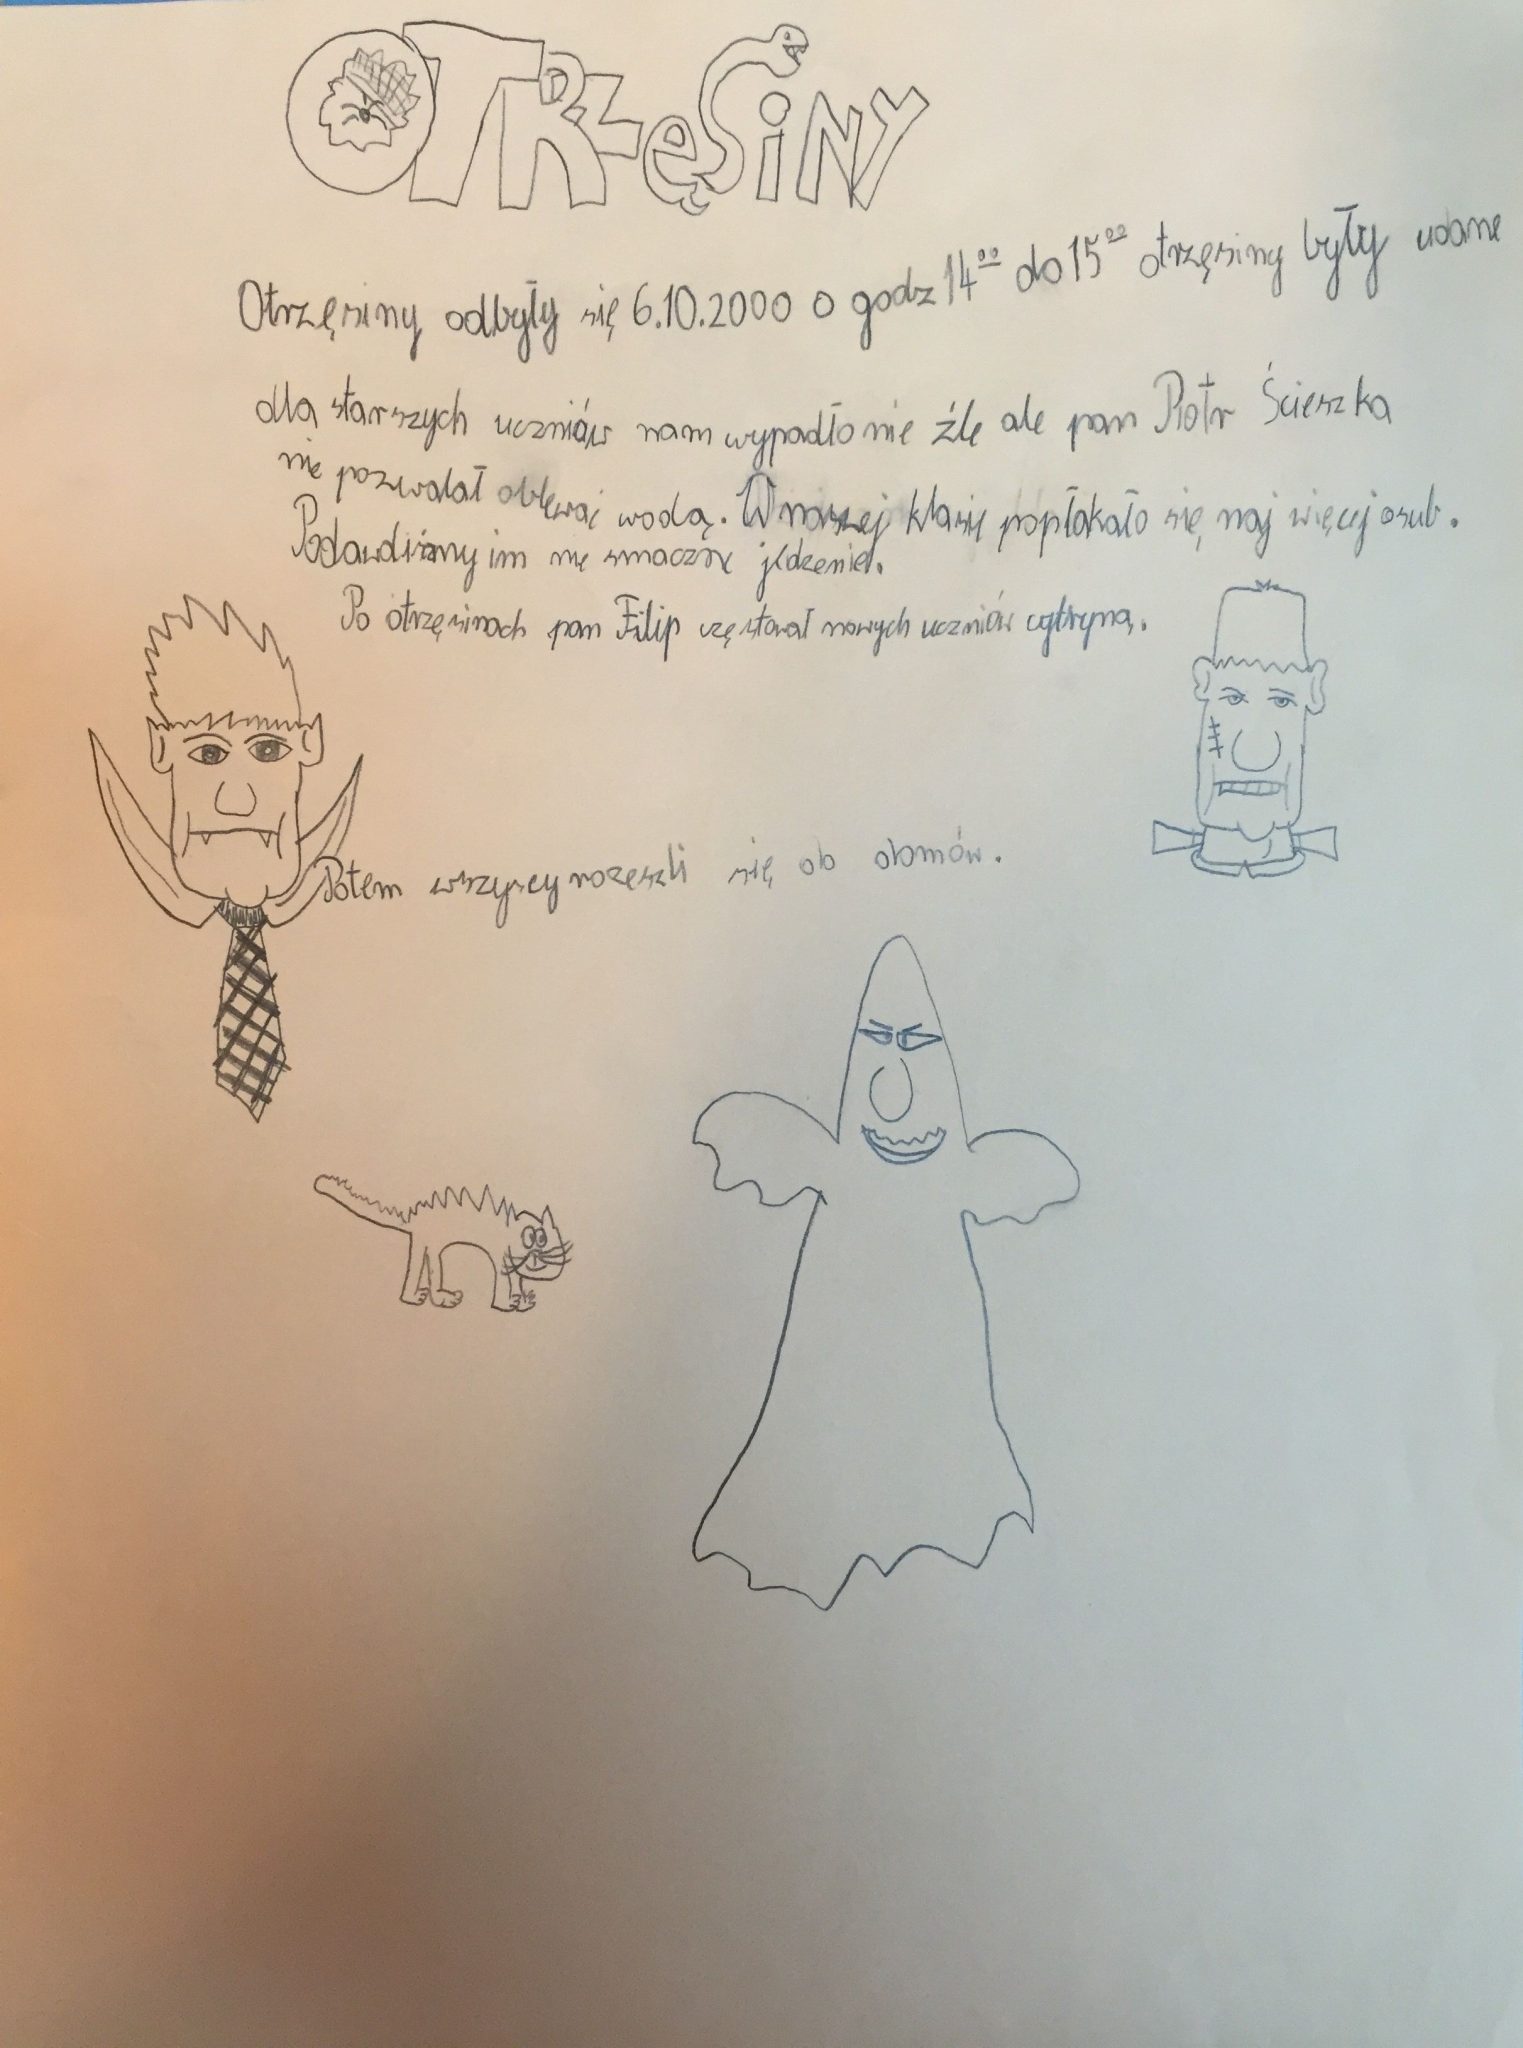 OTRZĘSINY
Otrzęsiny odbyły się 6.10.2000 o godz 14⁰⁰ do 15⁰⁰ otrzęsiny były udane
dla starszych uczniów nam wypadło nie źle ale pan Piotr Ścieszka
nie pozwalał oblewać wodą. W naszej klasie popłakało się naj więcej osub.
im nie smaczne jedzenie.
Po otrzęsinach pan Filip częstował nowych uczniów cytryną.
Potem wszyscy rozeszli się do domów.